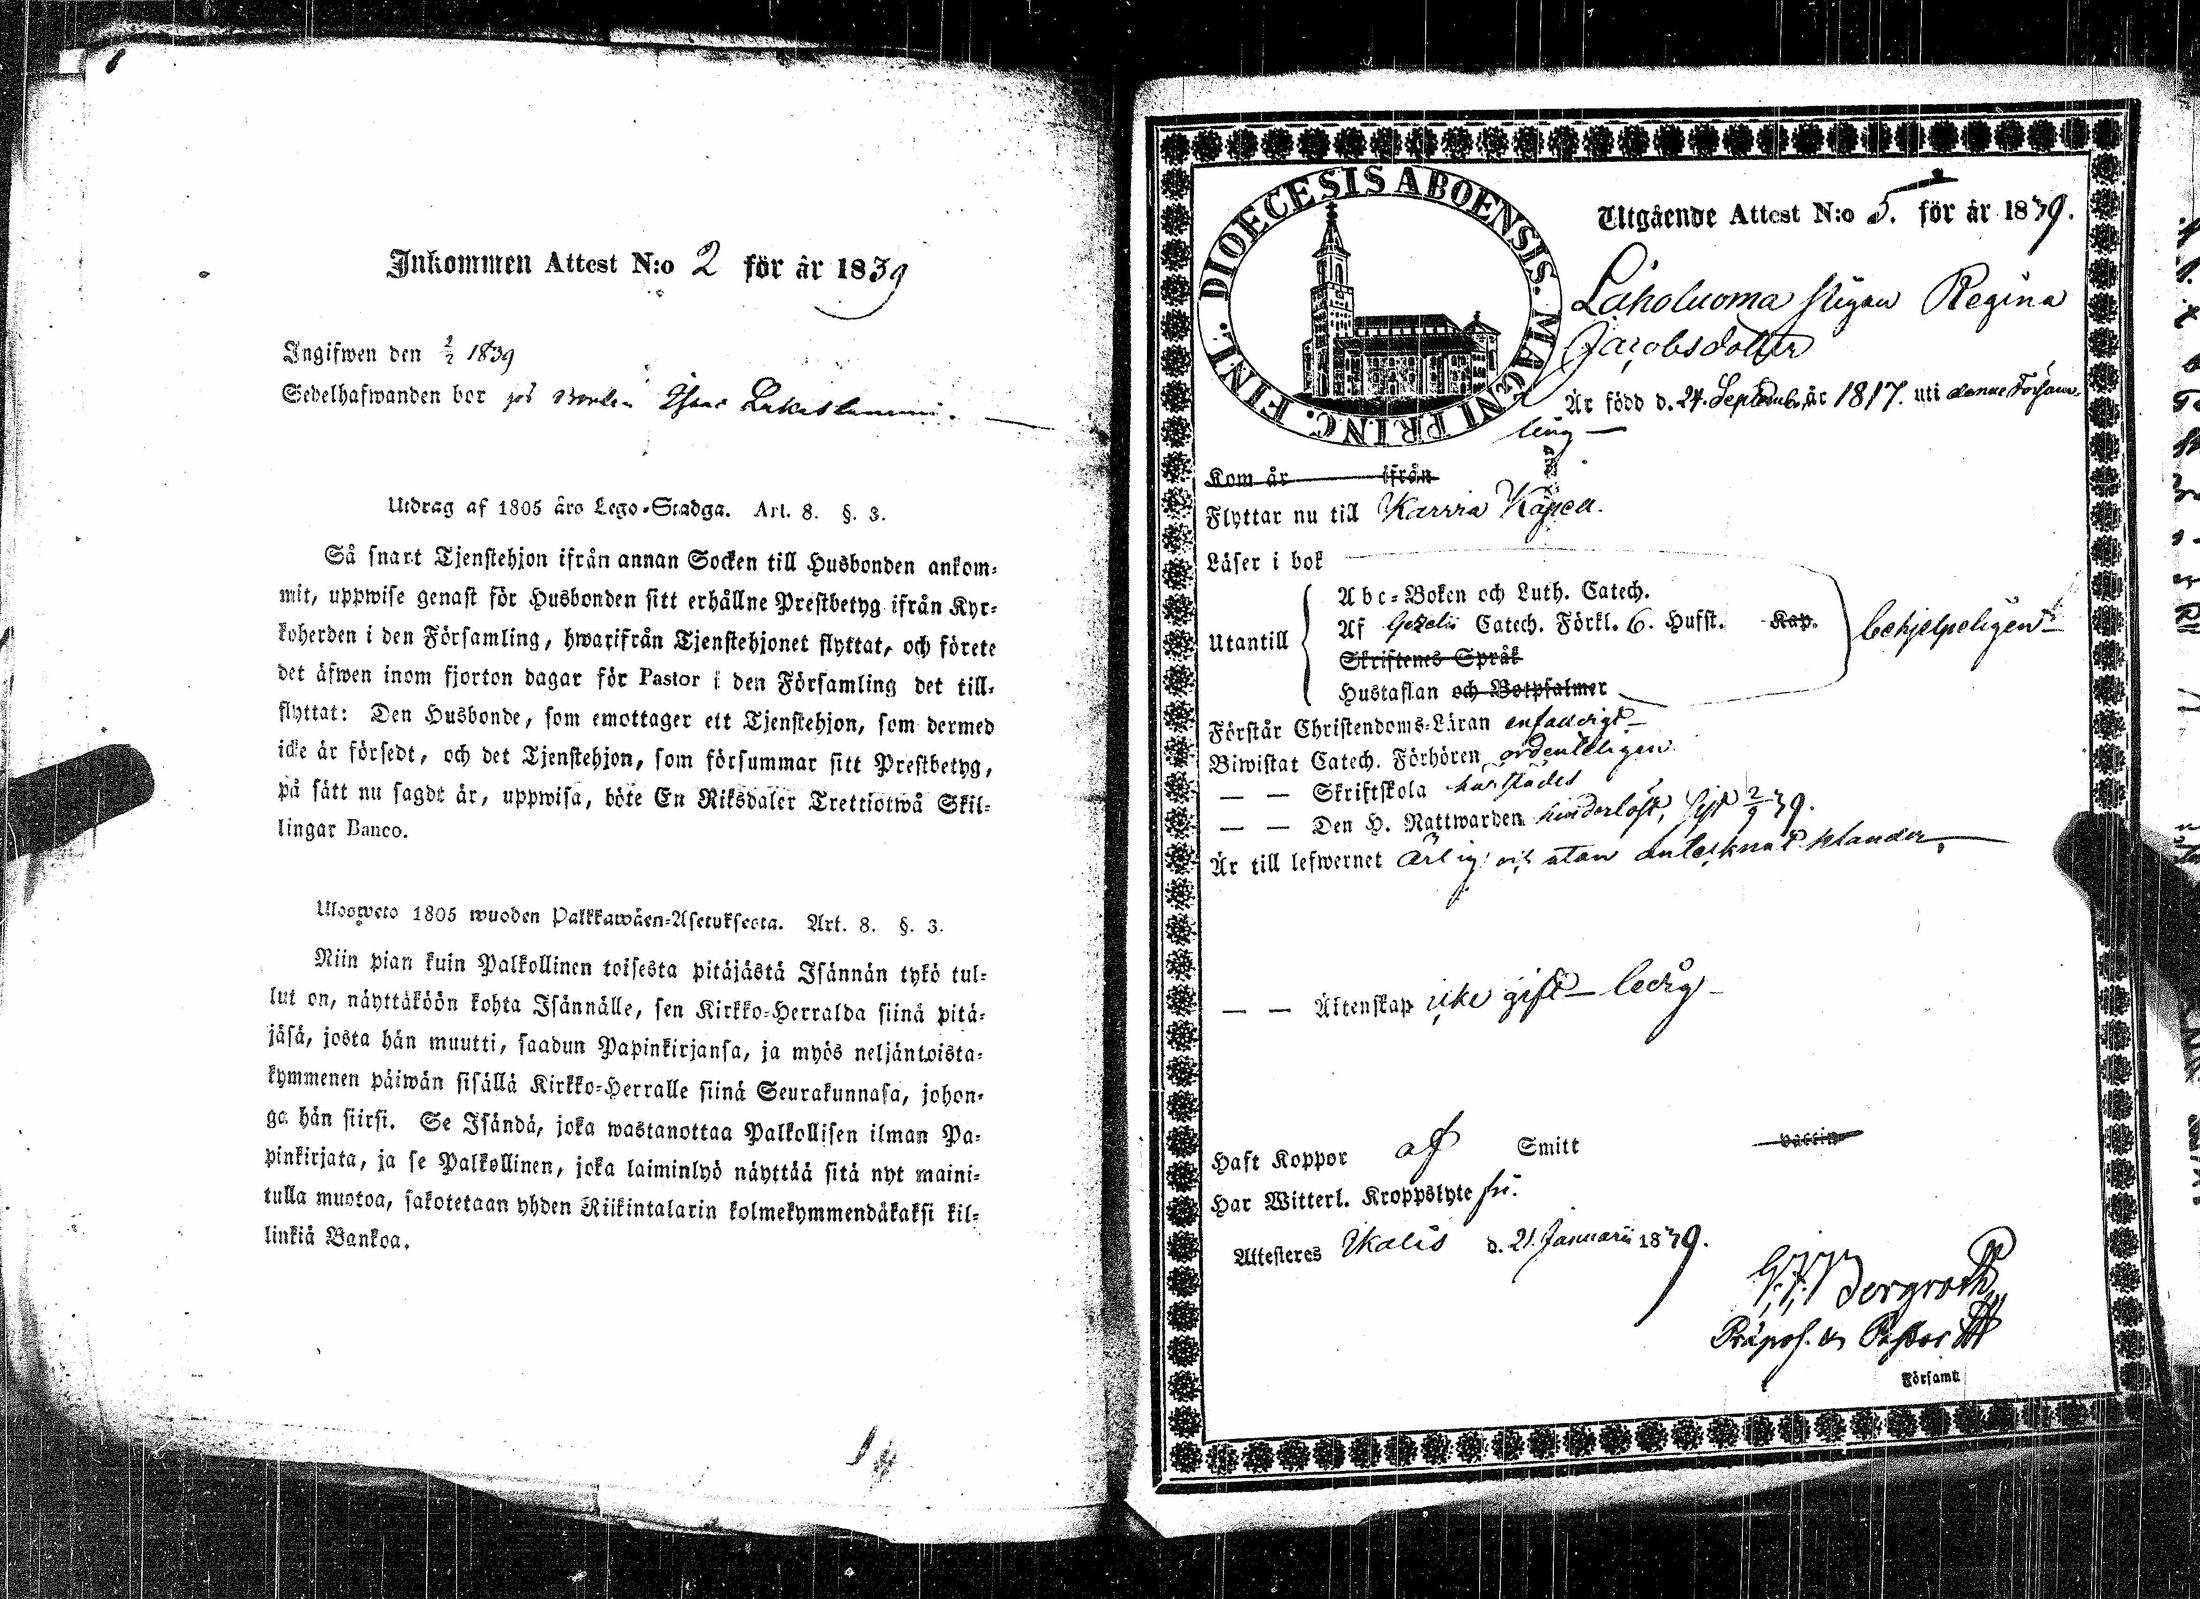 Inkommen Attest N:o 2 för år 1839
Ingifwen den 2/2 1839
Sedelhafwanden bor
Utdrag af 1805 års Lego-Stadga. Art. 8. §. 3.
Så snart Tjenstehjon ifrån annan Socken till Husbonden ankom-
mit, uppwise genast för Husbonden sitt erhållne Prestbetyg ifrån Kyr-
koherden i den Församling, hwarifrån Tjenstehjonet flyttat, och förete
det äfwen inom fjorton dagar för Pastor i den Församling det till-
flyttat: Den Husbonde, som emottager ett Tjenstehjon, som dermed
icke är försedt, och det Tjenstehjon, som försummar sitt Prestbetyg,
på sätt nu sagdt är, uppwisa, böte En Riksdaler Trettiotwå Skil-
lingar Banco.
Ulosweto 1805 wuoden Palkkawäen-Asetuksesta. Art. 8. §. 3.
Niin pian kuin Palkollinen toisesta pitäjästä Isännän tykö tul-
lut on, näyttäköön kohta Isännälle, sen Kirkko-Herralda siinä pitä-
jäsä, josta hän muutti, saadun Papinkirjansa, ja myös neljäntoista-
kymmenen päiwän sisällä Kirkko-Herralle siinä Seurakunnasa, johon-
ga hän siirsi. Se Isändä, joka wastanottaa Palkollisen ilman Pa-
pinkirjata, ja se Palkollinen, joka laiminlyö näyttää sitä nyt maini-
tulla muotoa, sakotetaan yhden Riikintalarin kolmekymmendäkaksi kil-
linkiä Bankoa.
DIOECESIS ABOENSIS. MAGNI PRINC. FINL.
Utgående Attest N:o 5. för år 1839.
Laholuoma pigan Regina
Jacobsdotter
Är född d. 24. September år 1817. uti denne Försam-
ling
Kom år ifrån
Flyttar nu till Karvia Kapell.
Läser i bok
Utantill
Abc-Boken och Luth. Catech.
Af Gezelii Catech. Förkl. 6. Hufst. Kap.
Skriftenes Språk
Hustaflan och Botpsalmer
behjelpeligen
Förstår Christendoms-Läran enfaldigt
Biwistat Catech. Förhören ordenteligen
— — Skriftskola härstädes
— — Den H. Nattwarden hinderlöst, sist
Är till lefwernet ärlig och utan antecknat klander.
— — Äktenskap icke gift - ledig
Haft Koppor af Smitt vaccin
Har Witterl. Kroppslyte fri.
Attesteres Ikalis d. 21. Januarii 1839.
Bergroth
Präpos. & Pastor
Församl